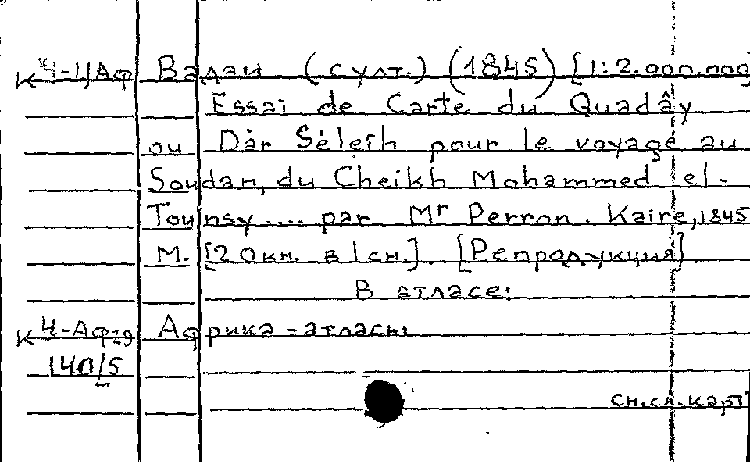 К 4-1/Аф Вадаи (султ.) (1845) [1:2.000.000]
Essai de Carte du Quadây
ou Dâr Séleih pour le voyage au
Soudan, du Cheikh Mohammed el-
Tounsy .... par Mr Perron. Kaire, 1845
М. [20 км. в 1 см.]. [Репродукция]
В атласе:
К 4-Аф-9 Африка - атласы
140/5
сн.ся.карт